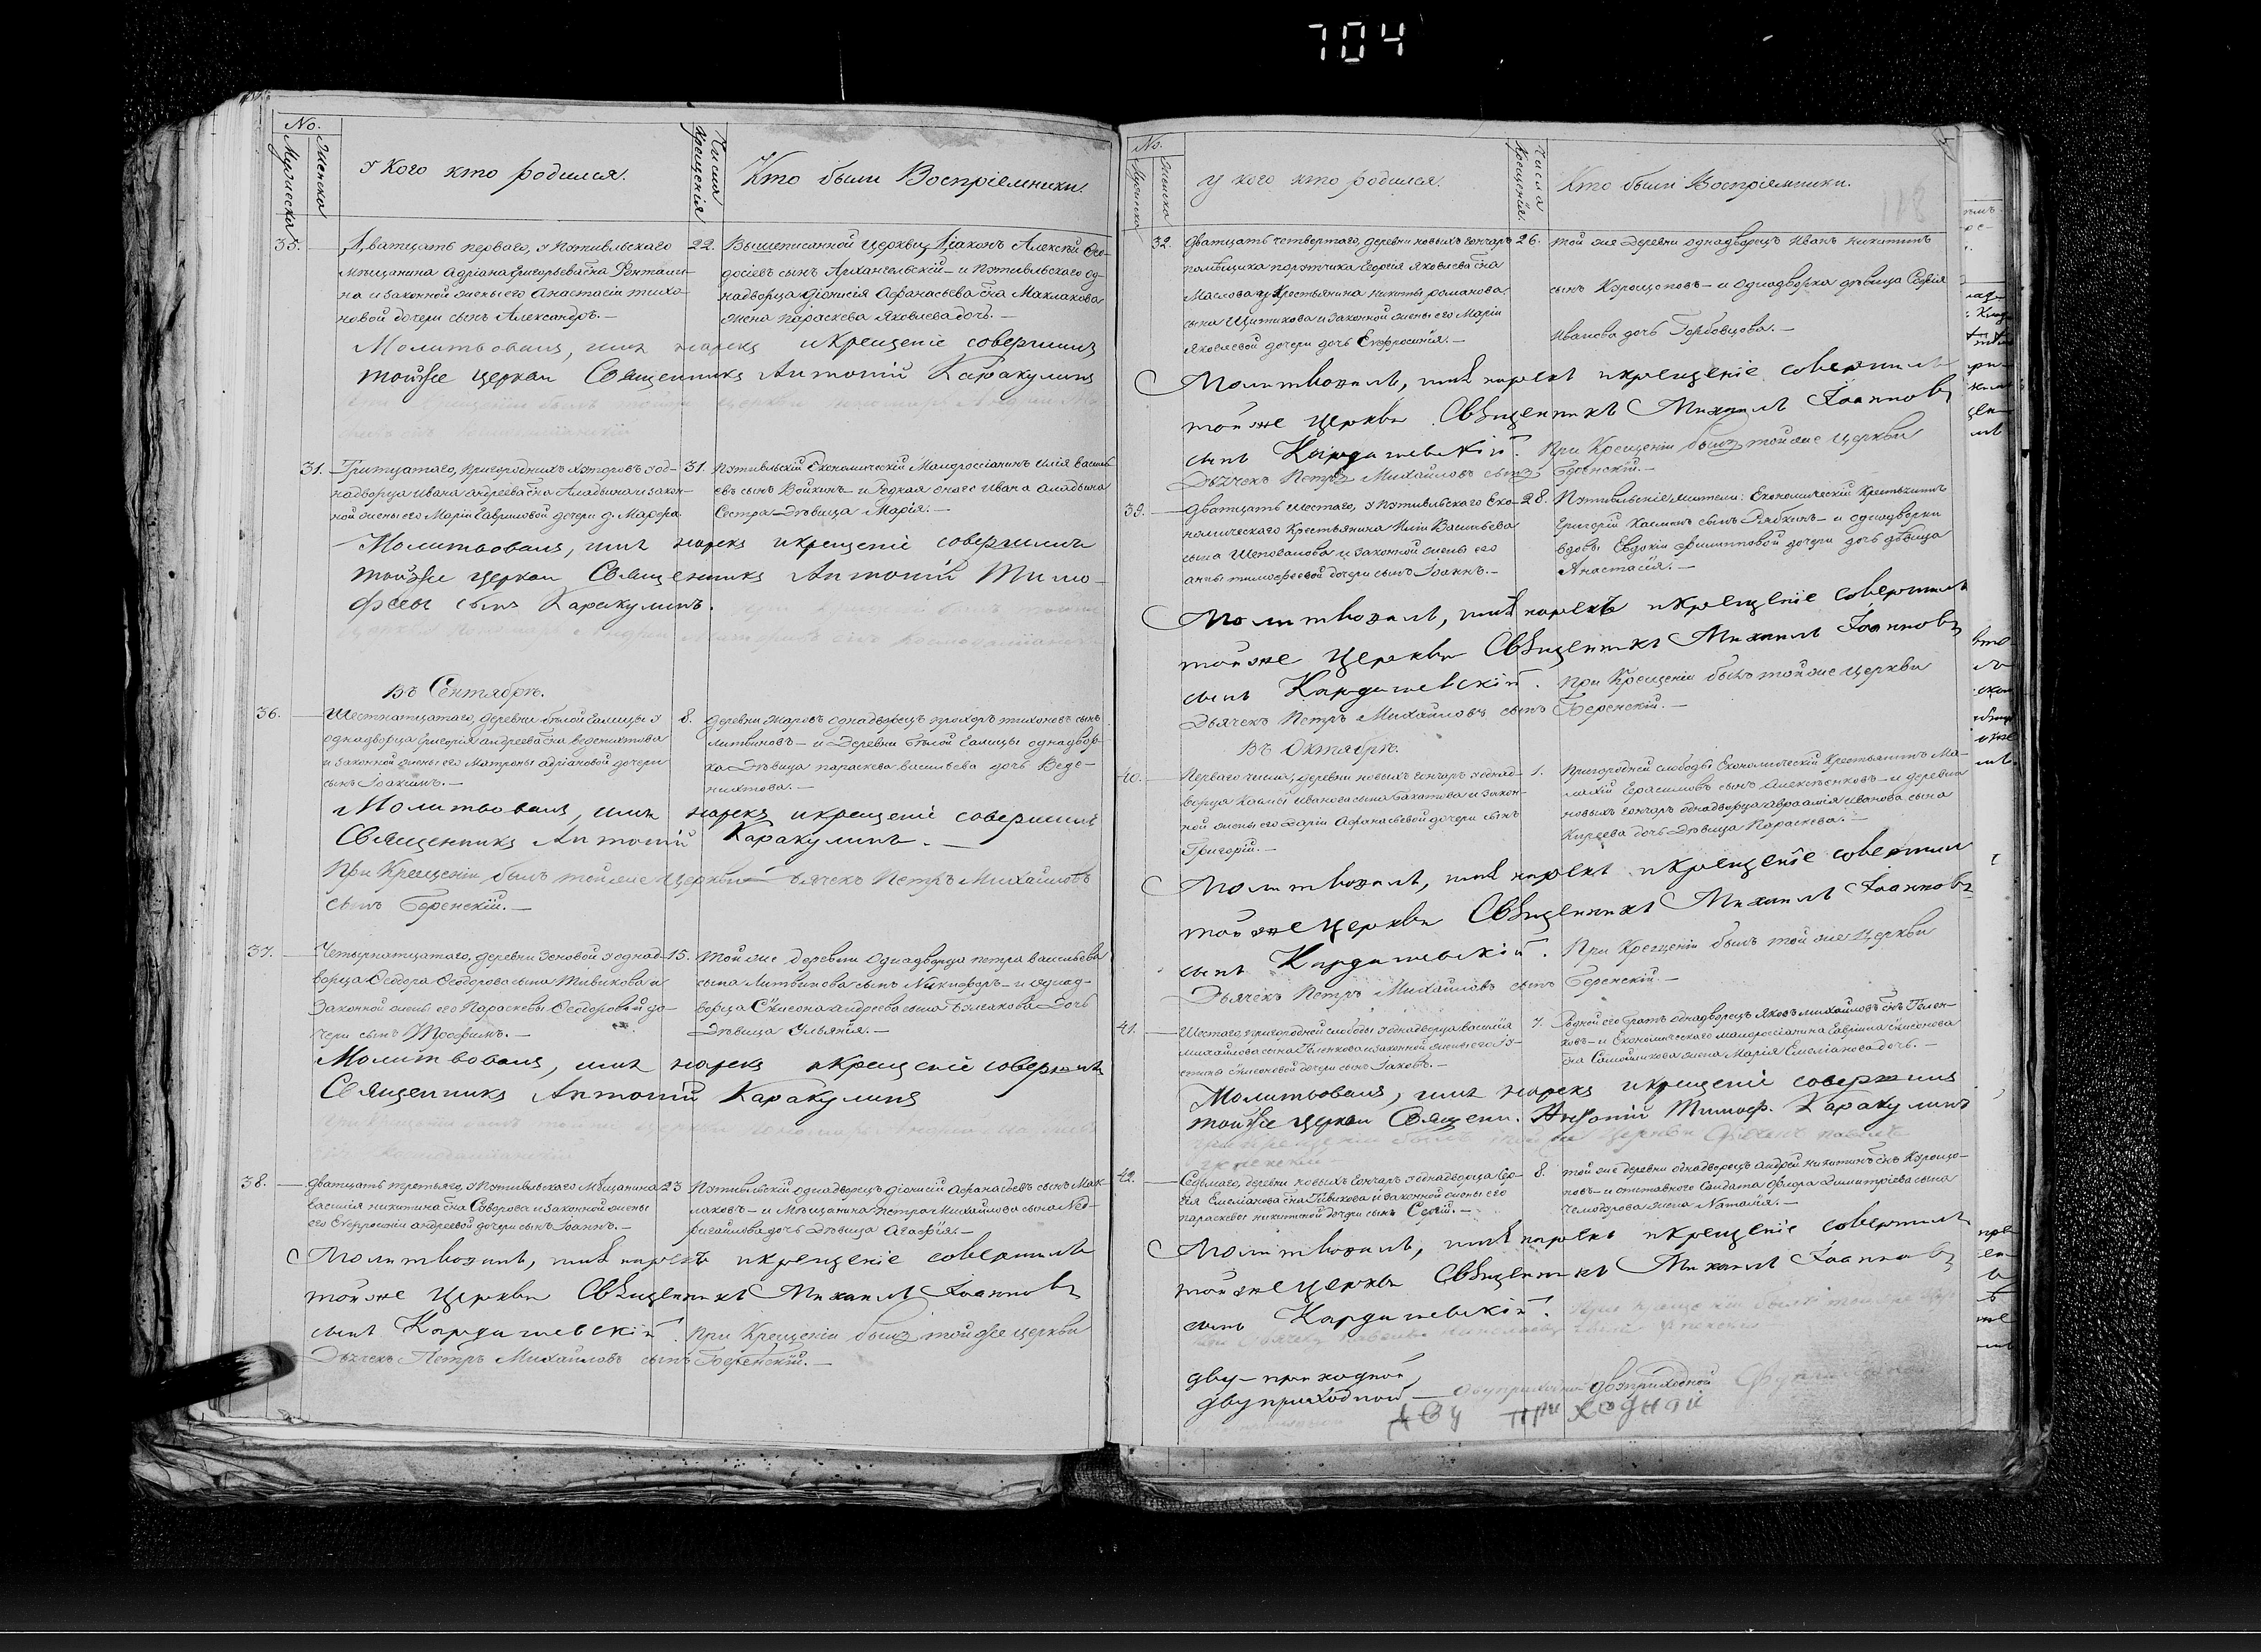 704
No.
Мужеска
Женска
У кого кто родился.
Числа Крещенія
Кто были Воспріемники.
35.
Дватцать перваго, у Путивльскаго
мѣщанина Адріана Григорьева сна
на и законной жены его Анастасіи Тихо-
новой дочери сынъ Александръ.—
22.
Вышеписанной Церкви Діаконъ Алексѣй Ѳео-
досіевъ сынъ Архангельскій— и Путивльскаго од-
надворца Діонисія Афанасьева сна Маклакова
жена Параскева Яковлева дочь.—
Молитвовалъ, имя нарекъ и Крещеніе совершилъ
тойже церкви Священникъ Антоній Каракулинъ
31.
Тритцатаго, Пригородныхъ хуторовъ у од-
надворца Ивана Андреева сна Аладьина и закон-
ной жены его Маріи Гавриловой дочери д. Марфа
31.
Путивльскій Економическій Малороссіанинъ Илія Василь
евъ сынъ Войкинъ— и родная онаго Ивана Аладьина
Сестра Дѣвица Марія.—
Молитвовалъ, имя нарекъ и крещеніе совершилъ
тойже церкви Священникъ Антоній Тимо-
феевъ сынъ Каракулинъ.
Въ Сентябрѣ.
36.
Шестнатцатаго, деревни бѣлой Галицы у
однадворца Григорія Андреева сна
и законной жены его Матроны Адріановой дочери
сынъ Іоакимъ.—
8.
деревни Жаровъ однадворецъ Прохоръ Тихоновъ сынъ
Литвиновъ— и Деревни бѣлой Галицы однадвор-
ка Дѣвица Параскева Васильева дочь Веде-
нихтова.—
Молитвовалъ, имя нарекъ и крещеніе совершилъ
Священникъ Антоній Каракулинъ.—
При Крещеніи былъ тойже Церкви Дьячекъ Петръ Михайловъ
сынъ Беренскій.—
37.
Четырнатцатаго, деревни Зеновой у однад-
ворца Ѳеодора Ѳеодорова сына Тивикова и
Законной жены его Параскевы Ѳеодоровой до-
чери сынъ Трофимъ.—
15.
Той же деревни Однадворца Петра Васильева
сына Литвинова сынъ Никифоръ— и однад-
ворца Сѵмеона Андреева сына дочь
Дѣвица Ульянія.—
Молитвовалъ, имя нарекъ и Крещеніе совершилъ
Священникъ Антоній Каракулинъ
38.
Дватцать третьяго, у Путивльскаго Мѣщанина
Василія Никитина сна Соворова и законной жены
его Евфросиніи Андреевой дочери сынъ Іоаннъ.—
23
Путивльскій однадворецъ Діонисій Афанасьевъ сынъ Мак-
лаковъ— и Мѣщанина Петра Михайлова сына
дочь дѣвица Агафія.—
Молитвовалъ, имя нарекъ и крещеніе совершилъ
тойже Церкви Священникъ Михаилъ Іоанновъ
сынъ Кардашевскій. При Крещеніи былъ тойже церкви
Дьячекъ Петръ Михайловъ сынъ Беренскій.—
No.
Мужеска
Женска
У кого кто родился.
Числа Крещенія.
Кто были Воспріемники.
118
32.
Дватцать четвертаго, деревни новыхъ Гончаръ
помѣщика порутчика Георгія Яковлева сна
Маслова у Крестьянина Никиты Романова
сына Щитикова и законной жены его Маріи
Яковлевой дочери дочь Евфросинія.—
26.
Той же Деревни однадворецъ Иванъ Никитинъ
сынъ Курощоповъ— и однадворка дѣвица Софія
Иванова дочь Горбовцова.—
Молитвовалъ, имя нарекъ и крещеніе совершилъ
тойже Церкви Священникъ Михаилъ Іоанновъ
сынъ Кардашевскій. При Крещеніи былъ тойже Церкви
Дьячекъ Петръ Михайловъ сынъ Беренскій.—
39.
Дватцать шестаго, у Путивльскаго Еко-
номическаго Крестьянина Васильева
сына Шеповалова и законной жены его
Анны Тимофеевой дочери сынъ Іоаннъ.—
28.
Путивльскіе жители: Економическій Крестьянинъ
Григорій сынъ Рябкинъ— и однадворки
вдовы Евдокіи Филипповой дочери дочь дѣвица
Анастасія.—
Молитвовалъ, имя нарекъ и крещеніе совершилъ
тойже Церкви Священникъ Михаилъ Іоанновъ
сынъ Кардашевскій. При Крещеніи былъ тойже Церкви
Дьячекъ Петръ Михайловъ сынъ Беренскій.—
Въ Октябрѣ.
40.
Перваго числа, деревни новыхъ Гончаръ у однад-
ворца Козмы Иванова сына и закон-
ной жены его Даріи Афанасьевой дочери сынъ
Григорій.—
1.
Пригородней слободы Економическій Крестьянинъ Ма-
лахій Герасимовъ сынъ Алексѣенковъ— и деревни
новыхъ Гончаръ однадворца Авраамія Иванова сына
Киреева дочь Дѣвица Параскева.—
Молитвовалъ, имя нарекъ и крещеніе совершилъ
тойже Церкви Священникъ Михаилъ Іоанновъ
сынъ Кардашевскій. При Крещеніи былъ той же Церкви
Дьячекъ Петръ Михайловъ сынъ Беренскій.—
41.
Шестаго, пригородней слободы у однадворца Василія
Михайлова сына Геленкова и законной жены его Іу-
стины Сѵмеоновой дочери сынъ Іаковъ.—
7.
Родной его братъ однадворецъ Яковъ Михайловъ снъ Гелен-
ковъ— и Економическаго малороссіанина Гавріила Сѵмеонова
сна Самойликова жена Марія Емеліанова дочь.—
Молитвовалъ, имя нарекъ и крещеніе совершилъ
тойже церкви Священ. Антоній Тимоф. Каракулинъ
42.
Седьмаго, деревни новыхъ Гончаръ у однадворца Сер-
гія Емеліанова сна Гивикова и законной жены его
Параскевы Никитиной дочери сынъ Сергій.—
8.
Той же деревни однадворецъ Андрей Никитинъ снъ Курощо-
повъ— и отставного Солдата Флора Димитріева сына
Чемодурова жена Наталія.—
Молитвовалъ, имя нарекъ и крещеніе совершилъ
тойже Церкви Священникъ Михаилъ Іоанновъ
сынъ Кардашевскій.
дву-приходной,
двуприходной— двуприходной
дву приходной